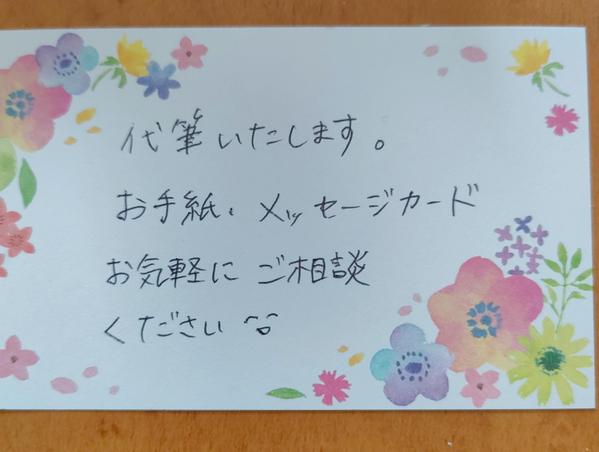 代筆いたします。
お手紙、メッセージカード
お気軽にご相談
ください^^